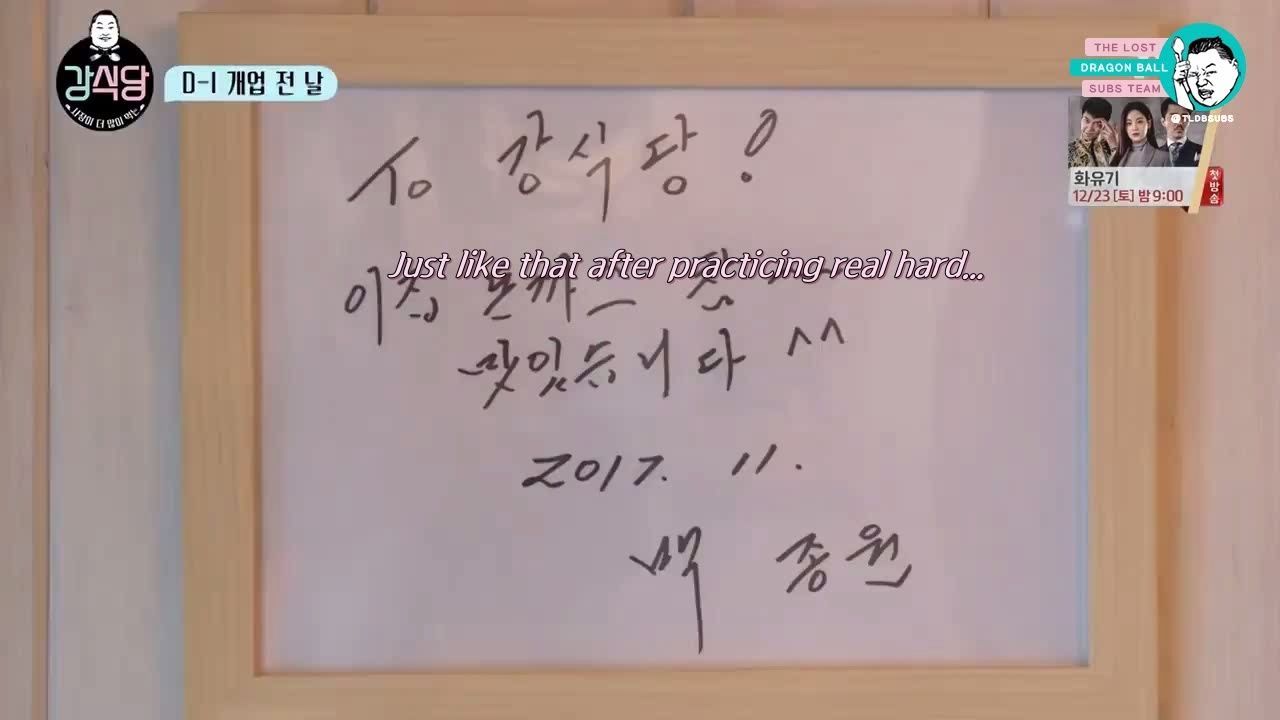 강식당
사장이 더 많이 먹는
D-1 개업 전 날
THE LOST
DRAGON BALL
SUBS TEAM
@TLDBSUBS
화유기
12/23 [토] 밤 9:00
첫방송
To 강식당!
Just like that after practicing real hard...
이집 돈까스 참
맛있습니다 ^^
2017. 11.
백 종원